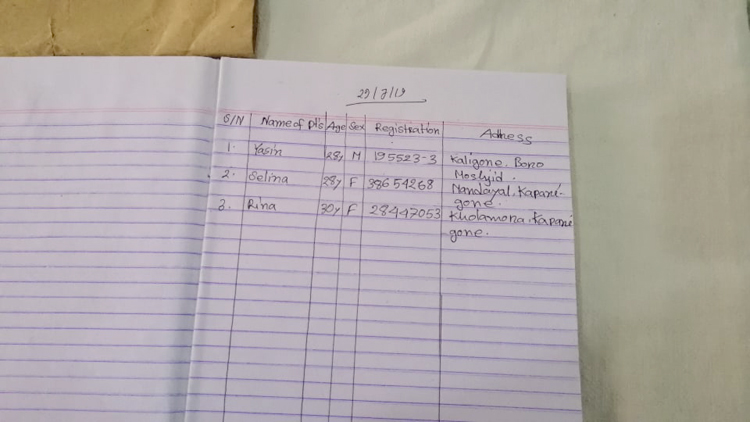 29/7/19
S/N Name of Pt's Age Sex Registration Adhess
1. Yasin 28y M 195523-3 Kaligone. Boro
Moslyid.
2. Selina 28y F 38654268 Nandayal. Kapasi-
gone.
3. Rina 30y F 28447053 Kholamona. Kapasi
gone.